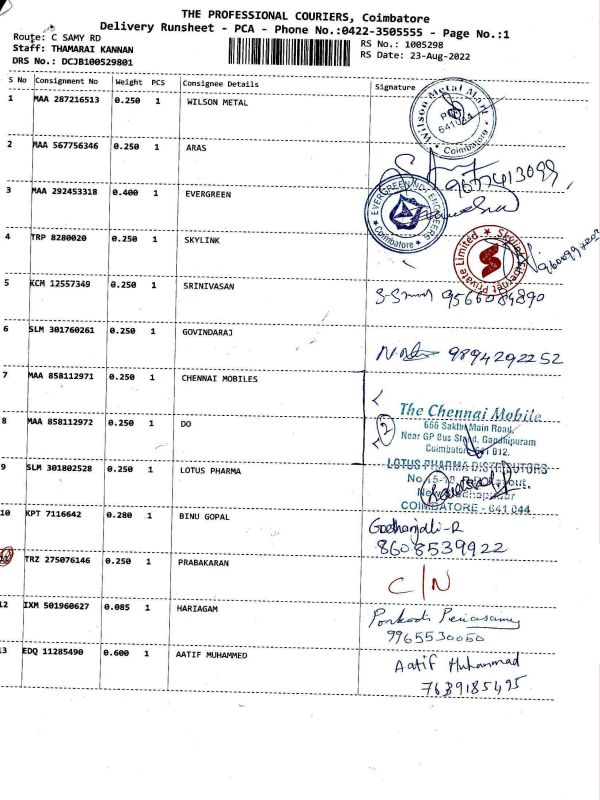 THE PROFESSIONAL COURIERS, Coimbatore
Delivery Runsheet - PCA - Phone No.:0422-3505555 - Page No.:1
Route: C SAMY RD
Staff: THAMARAI KANNAN
DRS No.: DCJB100529801
RS No.: 1005298
RS Date: 23-Aug-2022
S No Consignment No Weight PCS Consignee Details Signature
1 MAA 287216513 0.250 1 WILSON METAL
Wilson Metal Mart
641024
Coimbatore
2 MAA 567756346 0.250 1 ARAS
3 MAA 292453318 0.400 1 EVERGREEN
EVERGREEN
Coimbatore
4 TRP 8280020 0.250 1 SKYLINK
Private Limited
5 KCM 12557349 0.250 1 SRINIVASAN
9566084890
6 SLM 301760261 0.250 1 GOVINDARAJ
9894292252
7 MAA 858112971 0.250 1 CHENNAI MOBILES
The Chennai Mobile
8 MAA 858112972 0.250 1 DO
2
666 Sakthi Main Road,
Near GP Bus Stand, Gandhipuram
Coimbatore 641 012.
9 SLM 301802528 0.250 1 LOTUS PHARMA
LOTUS PHARMA DISTRIBUTORS
COIMBATORE - 641 044
10 KPT 7116642 0.280 1 BINU GOPAL
Geethanjali-R
8608539922
TRZ 275076146 0.250 1 PRABAKARAN
C/N
12 IXM 501960627 0.085 1 HARIAGAM
Ponkodi Periasamy
9965530050
13 EDQ 11285490 0.600 1 AATIF MUHAMMED
Aatif Muhammad
7639185495